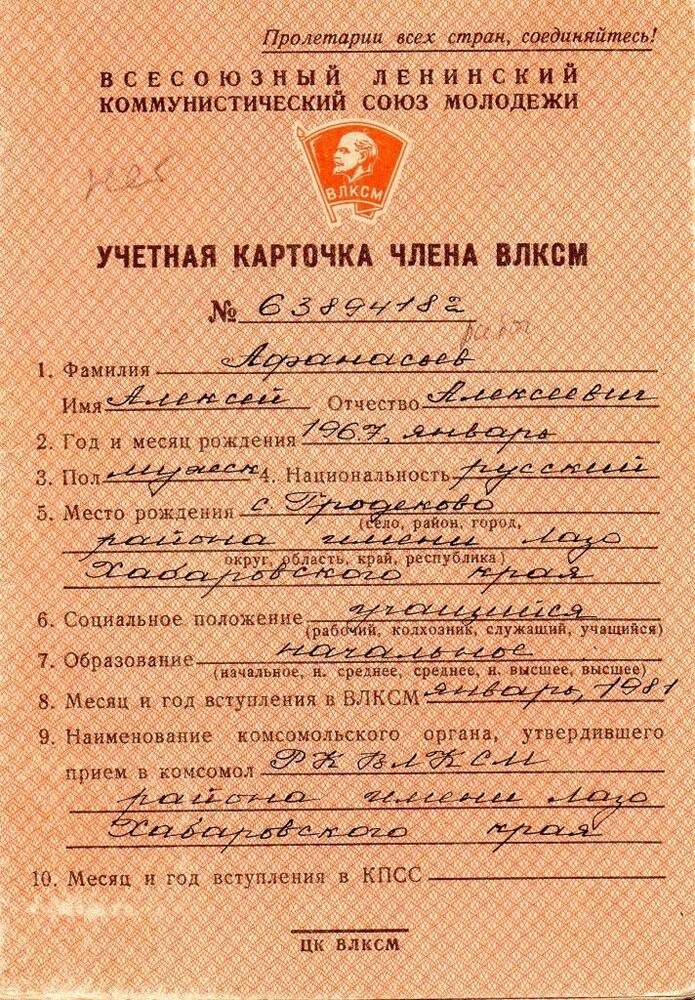 Пролетарии всех стран, соединяйтесь!
ВСЕСОЮЗНЫЙ ЛЕНИНСКИЙ
КОММУНИСТИЧЕСКИЙ СОЮЗ МОЛОДЕЖИ
ВЛКСМ
УЧЕТНАЯ КАРТОЧКА ЧЛЕНА ВЛКСМ
№ 63894182
1. Фамилия Афанасьев
Имя Алексей Отчество Алексеевич
2. Год и месяц рождения 1967, январь
3. Пол мужск 4. Национальность русский
5. Место рождения с. Гродеково
(село, район, город,
района имени Лазо
округ, область, край, республика)
Хабаровского края
6. Социальное положение учащийся
(рабочий, колхозник, служащий, учащийся)
7. Образование начальное
(начальное, н. среднее, среднее, н. высшее, высшее)
8. Месяц и год вступления в ВЛКСМ январь, 1981
9. Наименование комсомольского органа, утвердившего
прием в комсомол РК ВЛКСМ
района имени Лазо
Хабаровского края
10. Месяц и год вступления в КПСС
ЦК ВЛКСМ